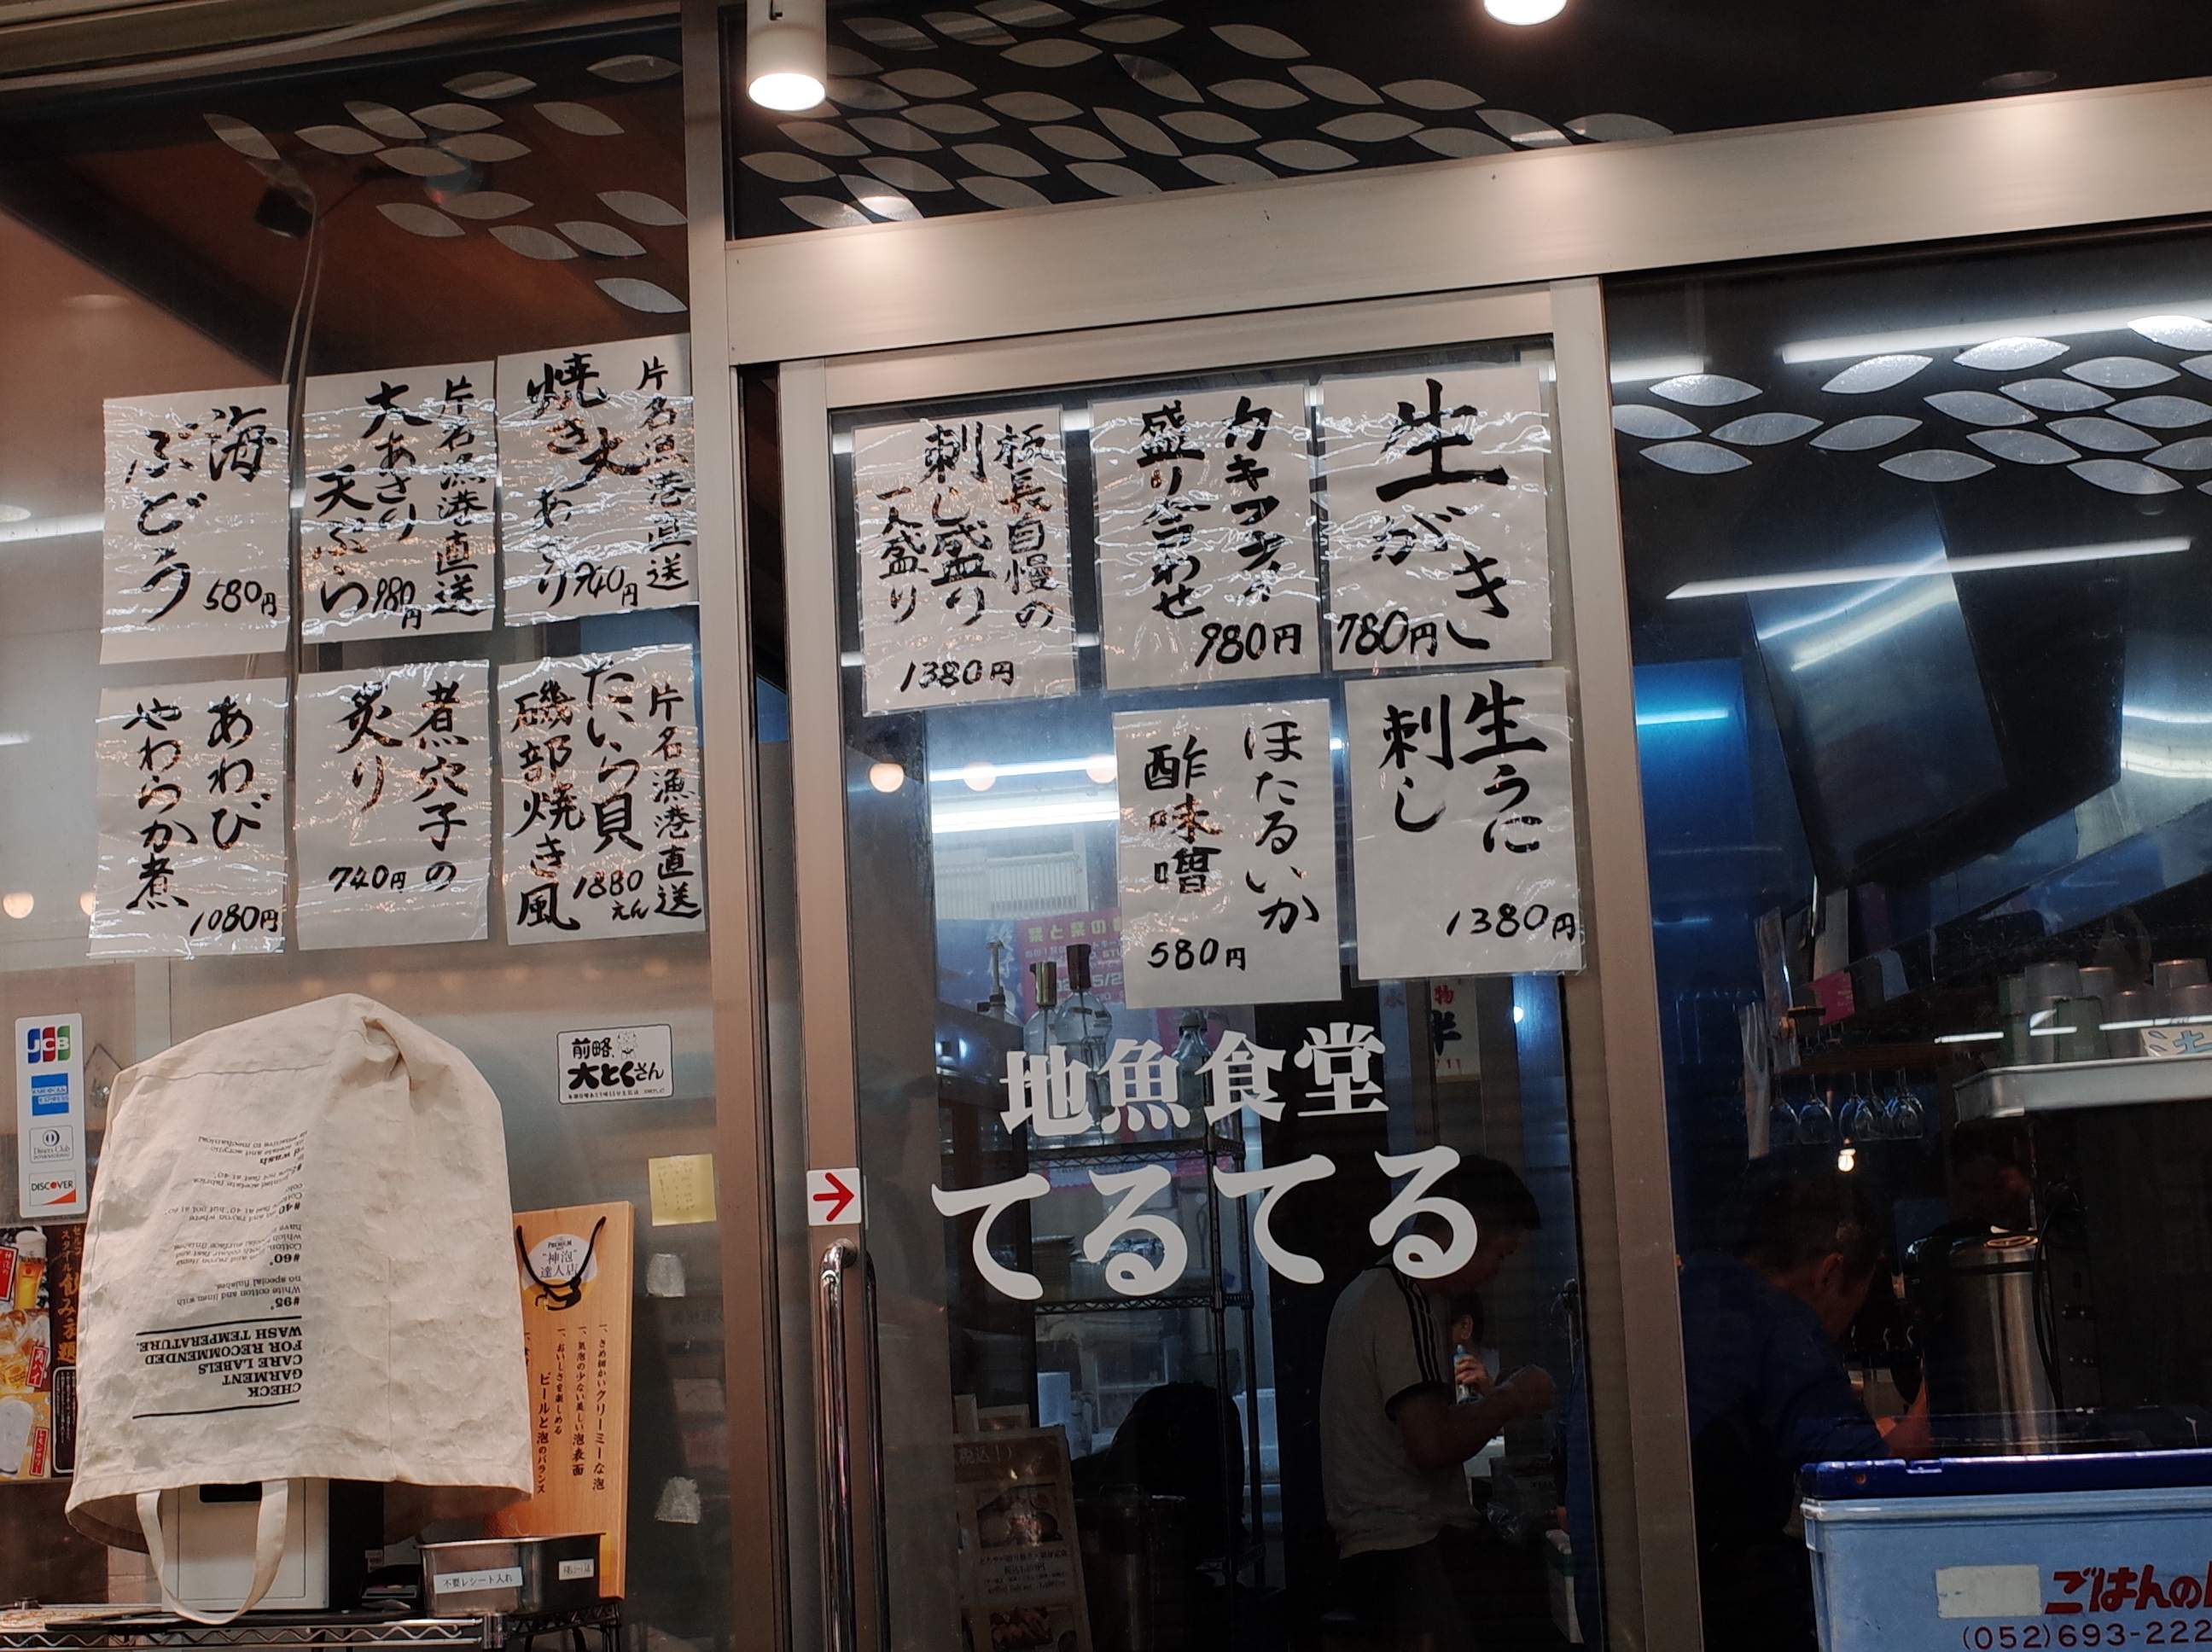 片名漁港直送
焼き大あさり
740円
片名漁港直送
大あさり
天ぷら
980円
海
ぶどう
580円
片名漁港直送
たいら貝
磯部焼き風
1880えん
煮穴子の
炙り
740円
あわび
やわらか煮
1080円
生がき
780円
カキフライ
盛り合わせ
980円
板長自慢の
刺し盛り
一人盛り
1380円
生うに
刺し
1380円
ほたるいか
酢味噌
580円
地魚食堂
てるてる
JCB
AMERICAN EXPRESS
Diners Club
INTERNATIONAL
DISCOVER
前略、
大とくさん
PREMIUM
"神泡"
達人店
一、きめ細かいクリーミーな泡
一、気泡の少ない美しい泡表面
一、おいしさを楽しめる
ビールと泡のバランス
CHECK
GARMENT
CARE LABELS
FOR RECOMMENDED
WASH TEMPERATURE.
#95°
White cotton and linen with
no special finishes.
#60°
不要レシート入れ
ごはんの
(052)693-222